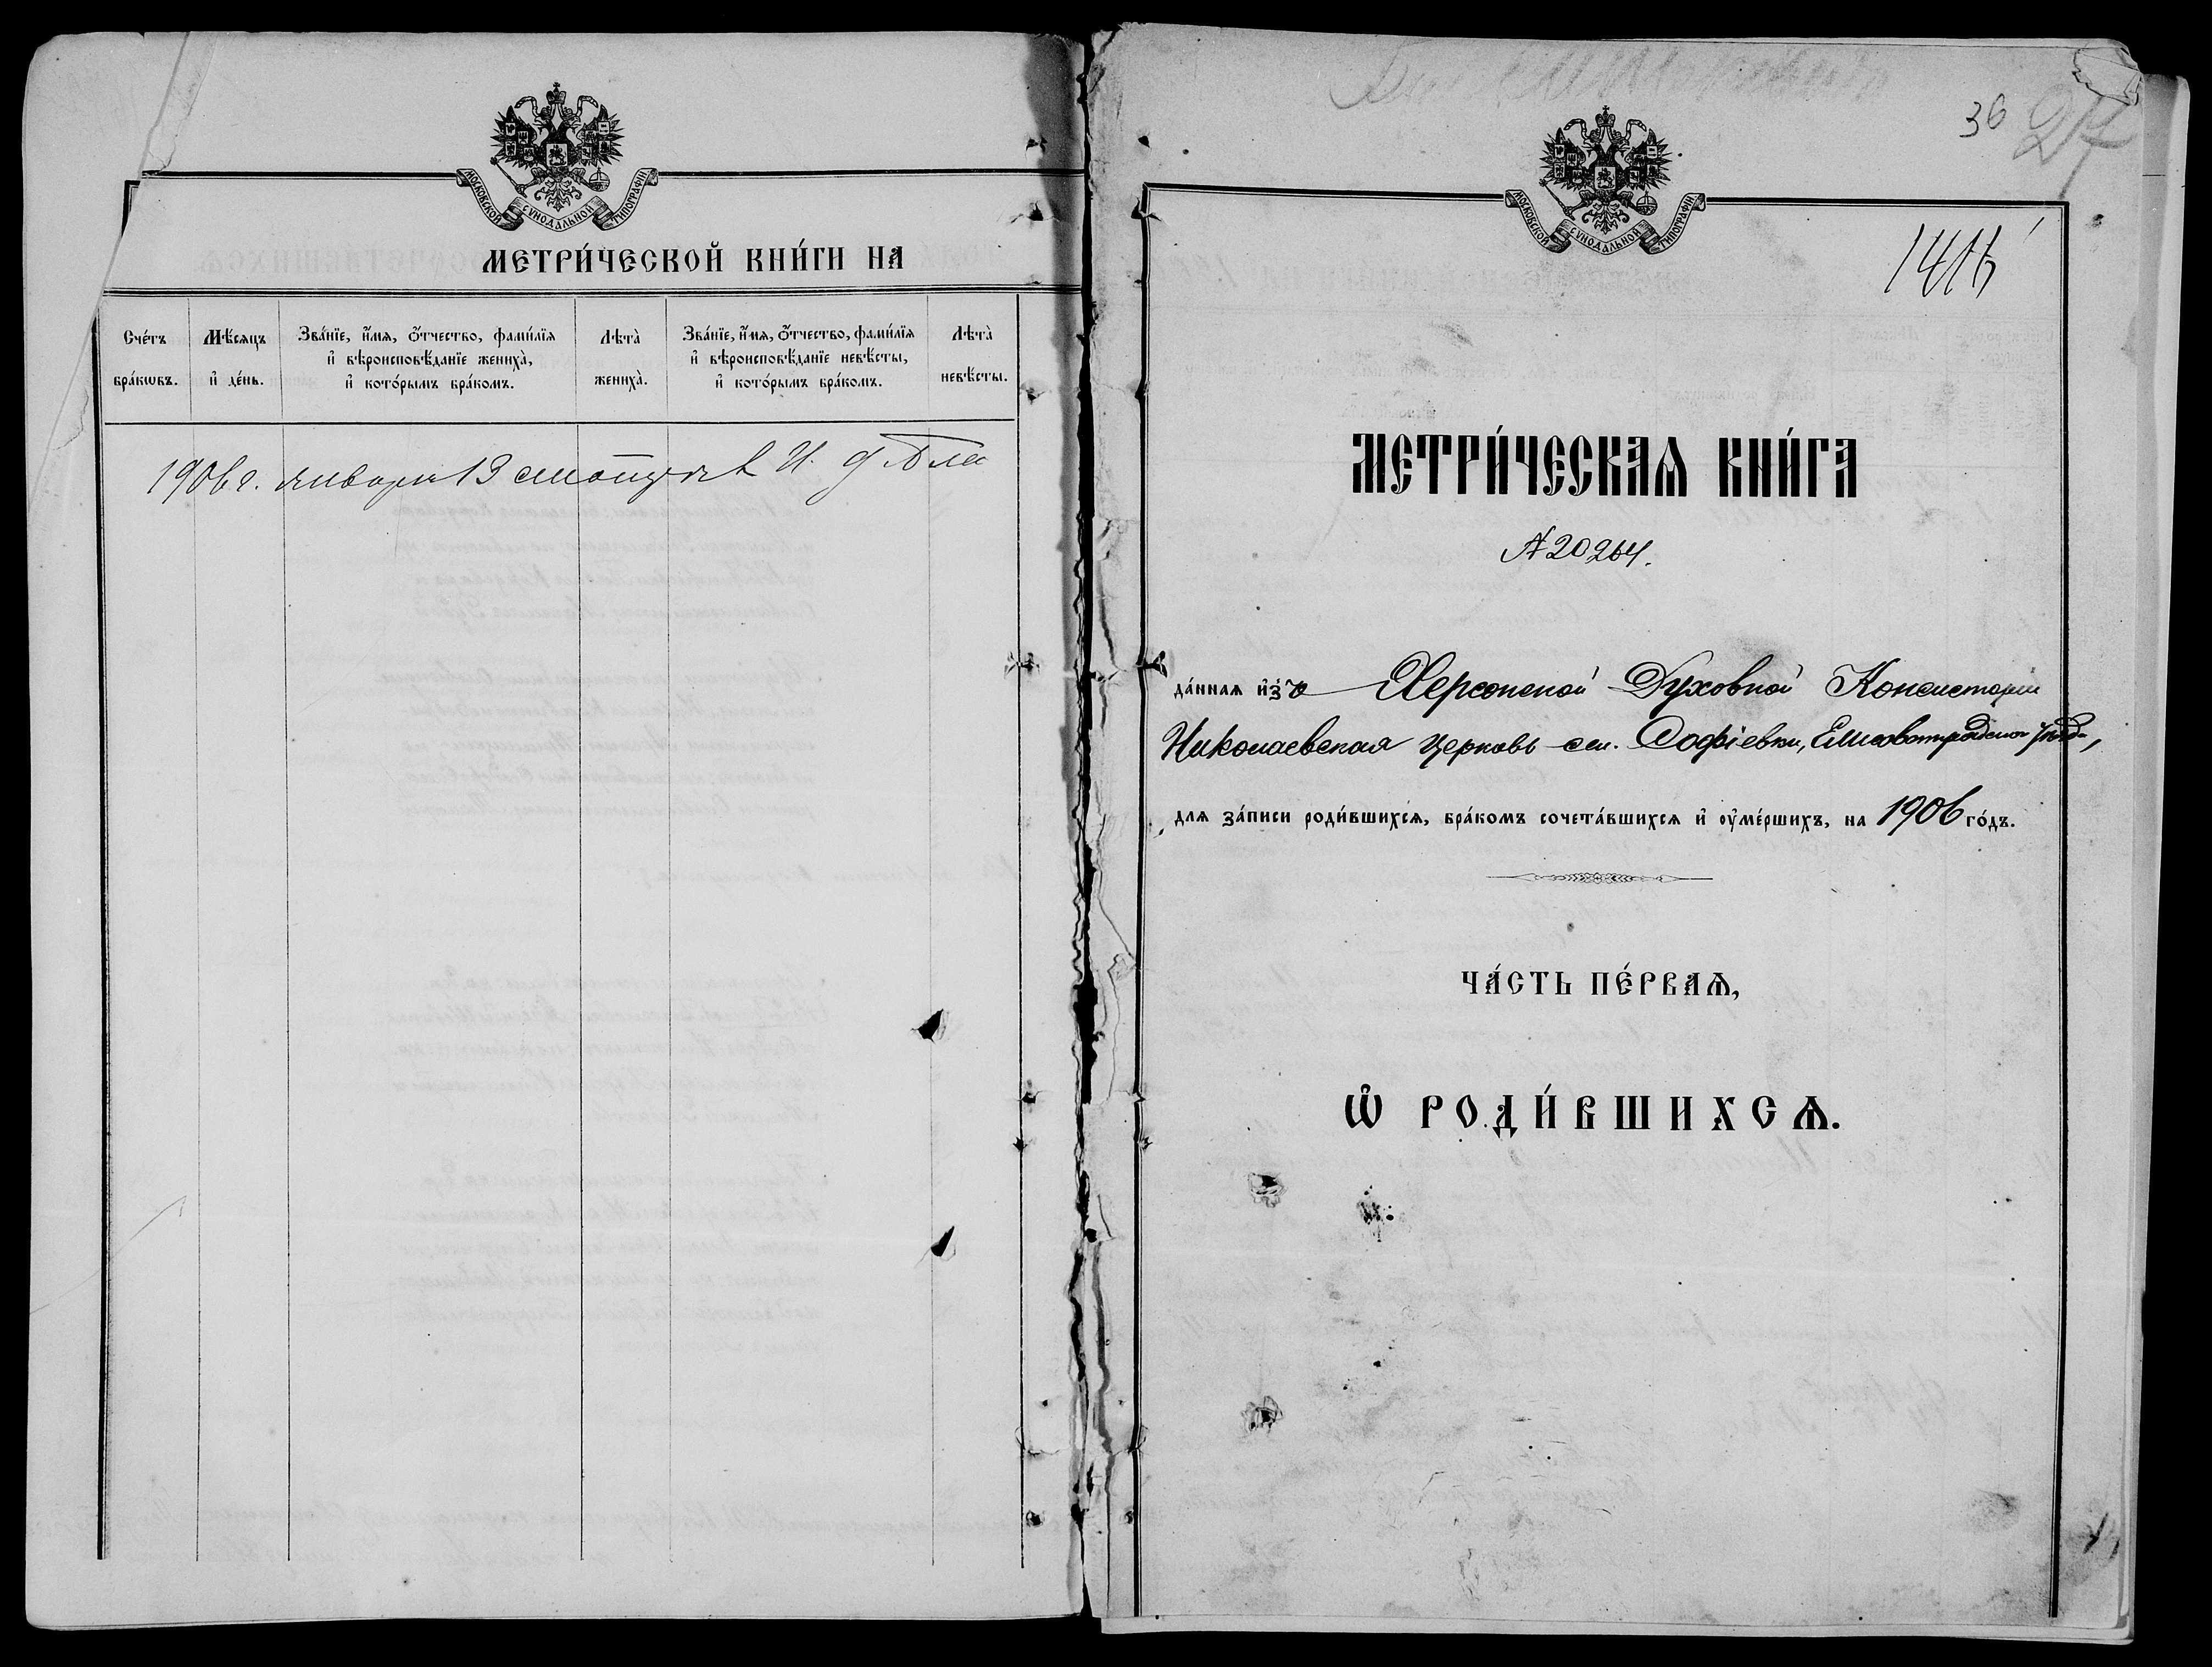 МОСКОВСКОЙ СѴНОДАЛЬНОЙ ТИПОГРАФІИ
МЕТРИ́ЧЕСКОЙ КНИ́ГИ НА
Сче́тъ бра́кѡвъ.
Мѣ́сяцъ и҆ де́нь.
Зва́нїе, и҆́мя, ѻ҆́тчество, фами́лїя
и҆ вѣроисповѣ́данїе жениха̀,
и҆ кото́рымъ бра́комъ.
Лѣта̀ жениха̀.
Зва́нїе, и҆́мя, ѻ҆́тчество, фами́лїя
и҆ вѣроисповѣ́данїе невѣ́сты,
и҆ кото́рымъ бра́комъ.
Лѣта̀ невѣ́сты.
1906 г. января 13
36
27
МОСКОВСКОЙ СѴНОДАЛЬНОЙ ТИПОГРАФІИ
МЕТРИ́ЧЕСКАѦ КНИ́ГА
№ 20264.
да́нная и҆зъ Херсонской Духовной Консисторіи
Николаевская церковь сел. Софіевки, Елисаветградскаго уѣзда,
для за́писи роди́вшихсѧ, бра́комъ сочета́вшихсѧ и҆ ᲂу҆ме́ршихъ, на 1906 го́дъ.
ЧА́СТЬ ПЕ́РВАѦ,
Ѽ РОДИ́ВШИХСѦ.